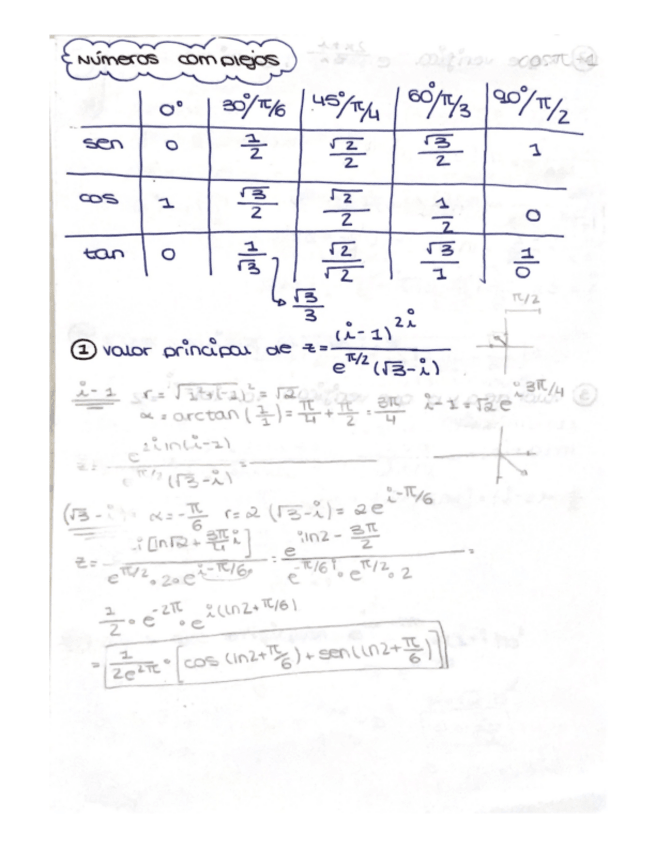 Números complejos
0° 30°/π/6 45°/π/4 60°/π/3 90°/π/2
sen 0 1/2 √2/2 √3/2 1
cos 1 √3/2 √2/2 1/2 0
tan 0 1/√3 √2/√2 √3/1 1/0
↳ √3/3
π/2
① valor principal de z = (i-1)^2i / e^π/2 (√3-i)
i-1 r = √1²+(-1)² = √2
α = arctan (1/1) = π/4 + π/2 = 3π/4 i-1 = √2 e^i3π/4
z = e^2i ln(i-1) / e^π/2 (√3-i) =
(√3-i) α = -π/6 r = 2 (√3-i) = 2e^i-π/6
z = i[ln√2 + 3π/4 i] / e^π/2 · 2 · e^i-π/6 = e^iln2 - 3π/2 / e^-π/6 i · e^π/2 · 2 =
1/2 · e^-2π · e^i(ln2+π/6)
= 1/2e^2π · [cos (ln2+π/6) + sen(ln2+π/6)]